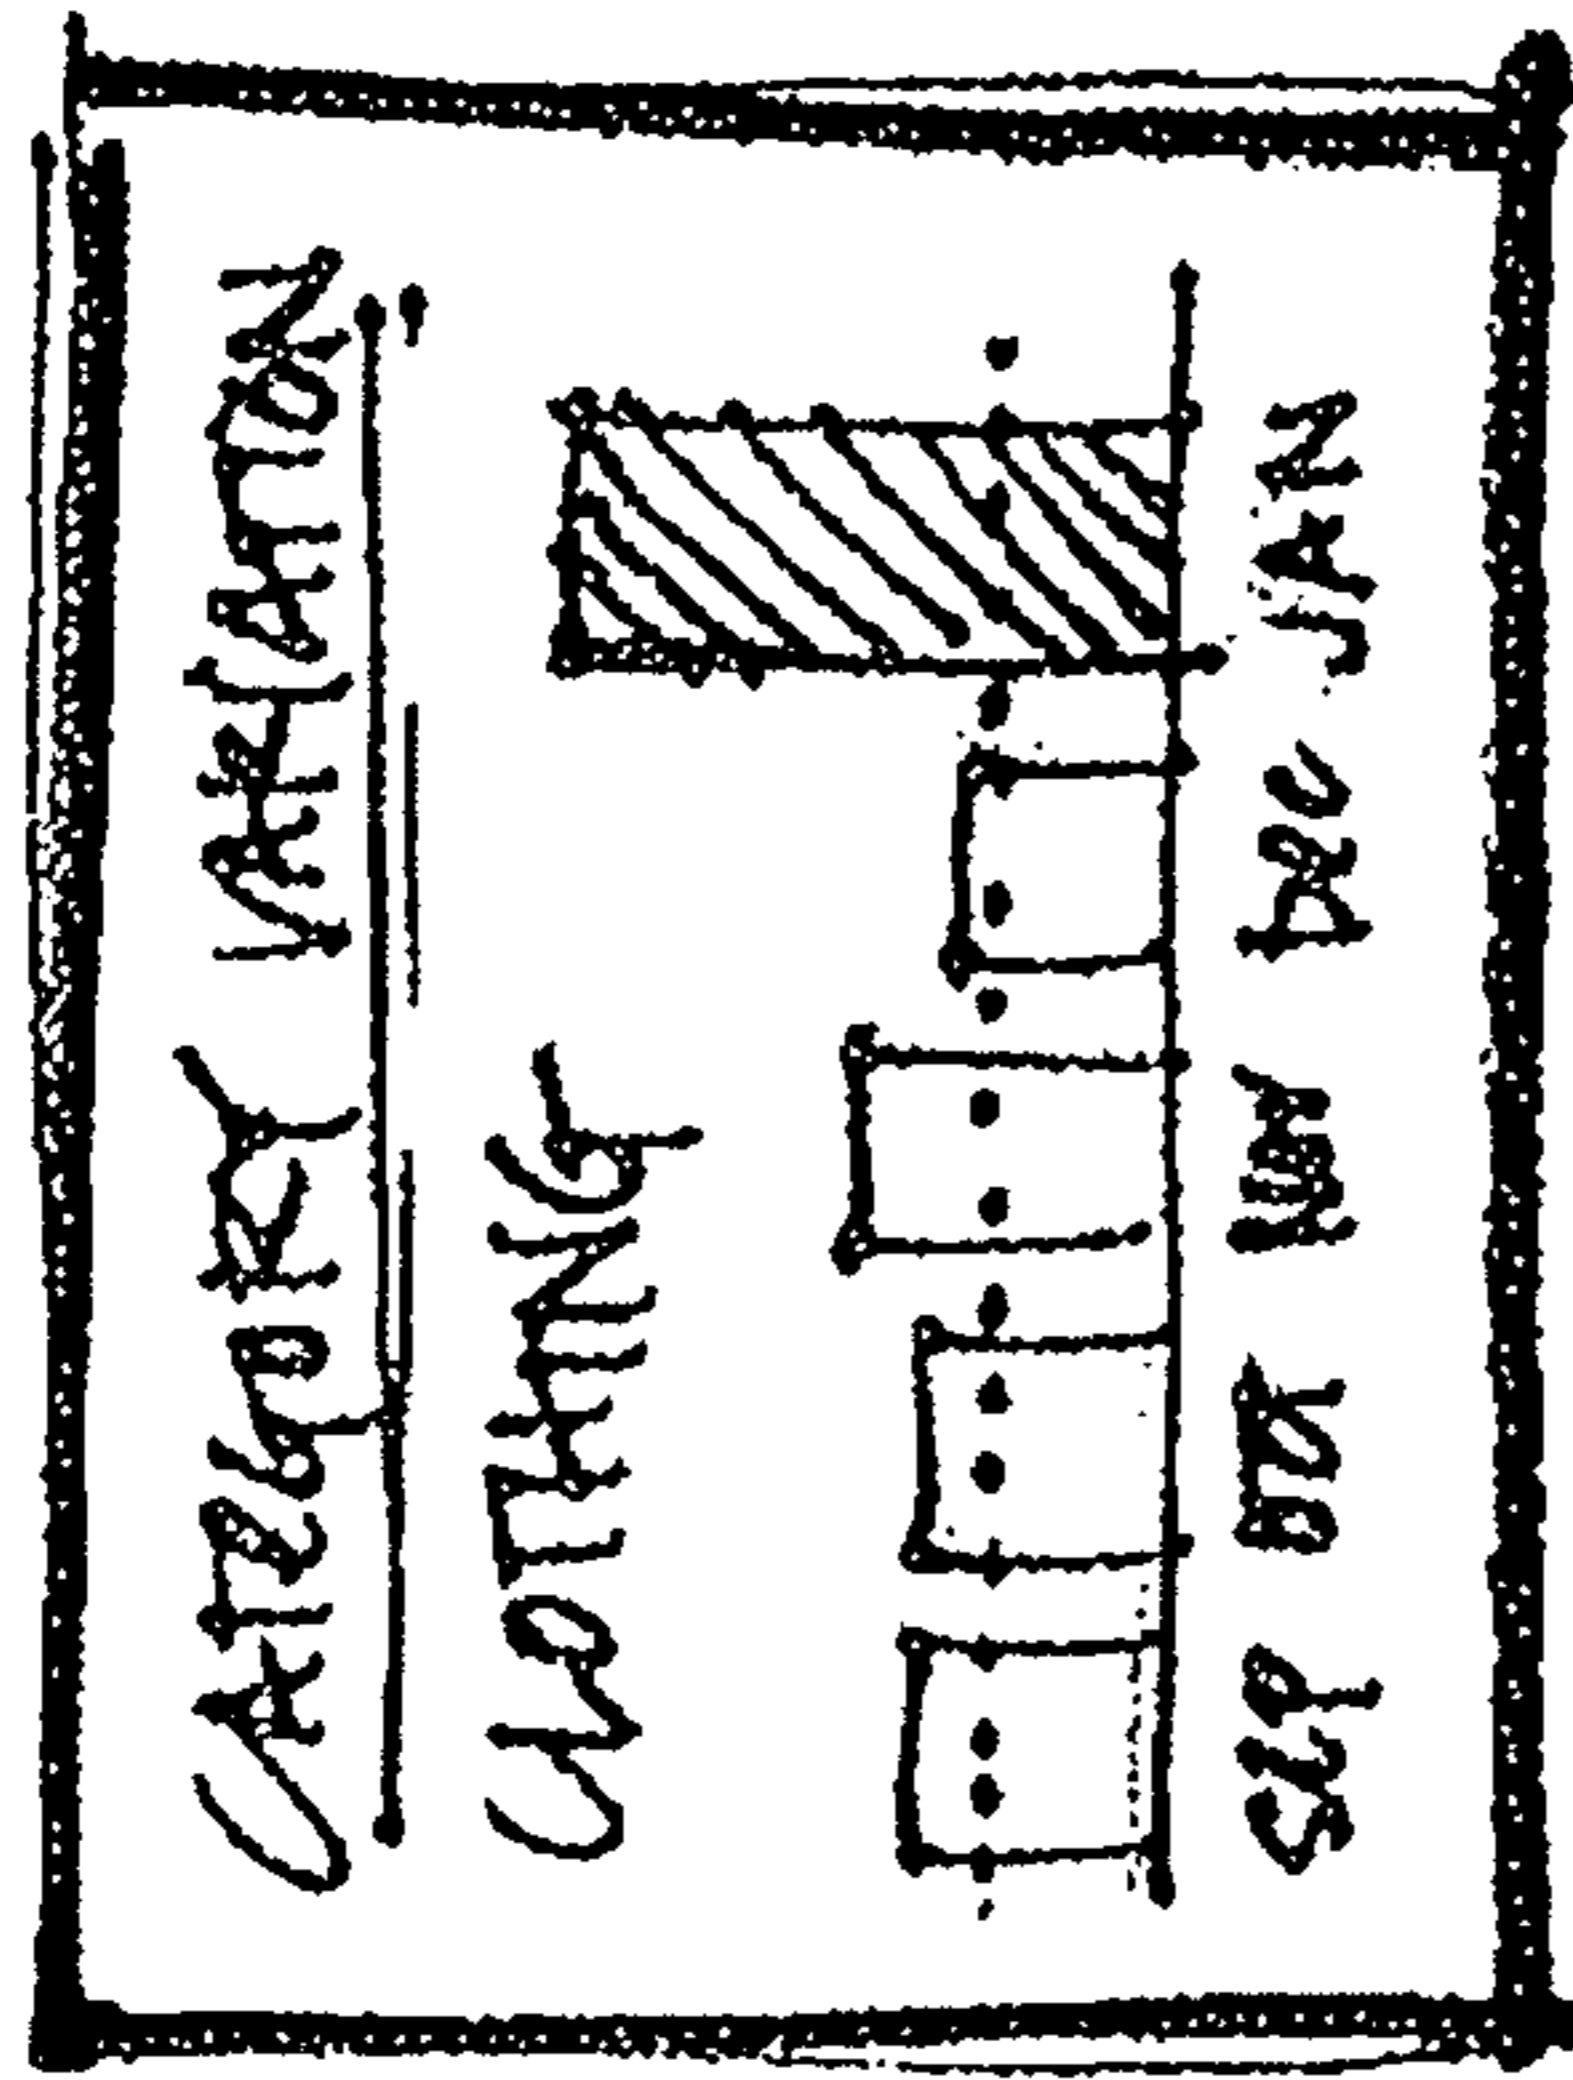 CATEGORY VARIATION
CLOTHING
SEP OCT NOV DEC JAN